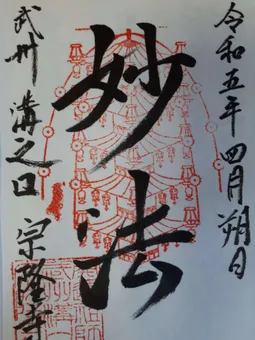 令和五年四月朔日
妙法
武州 溝之口 宗隆寺